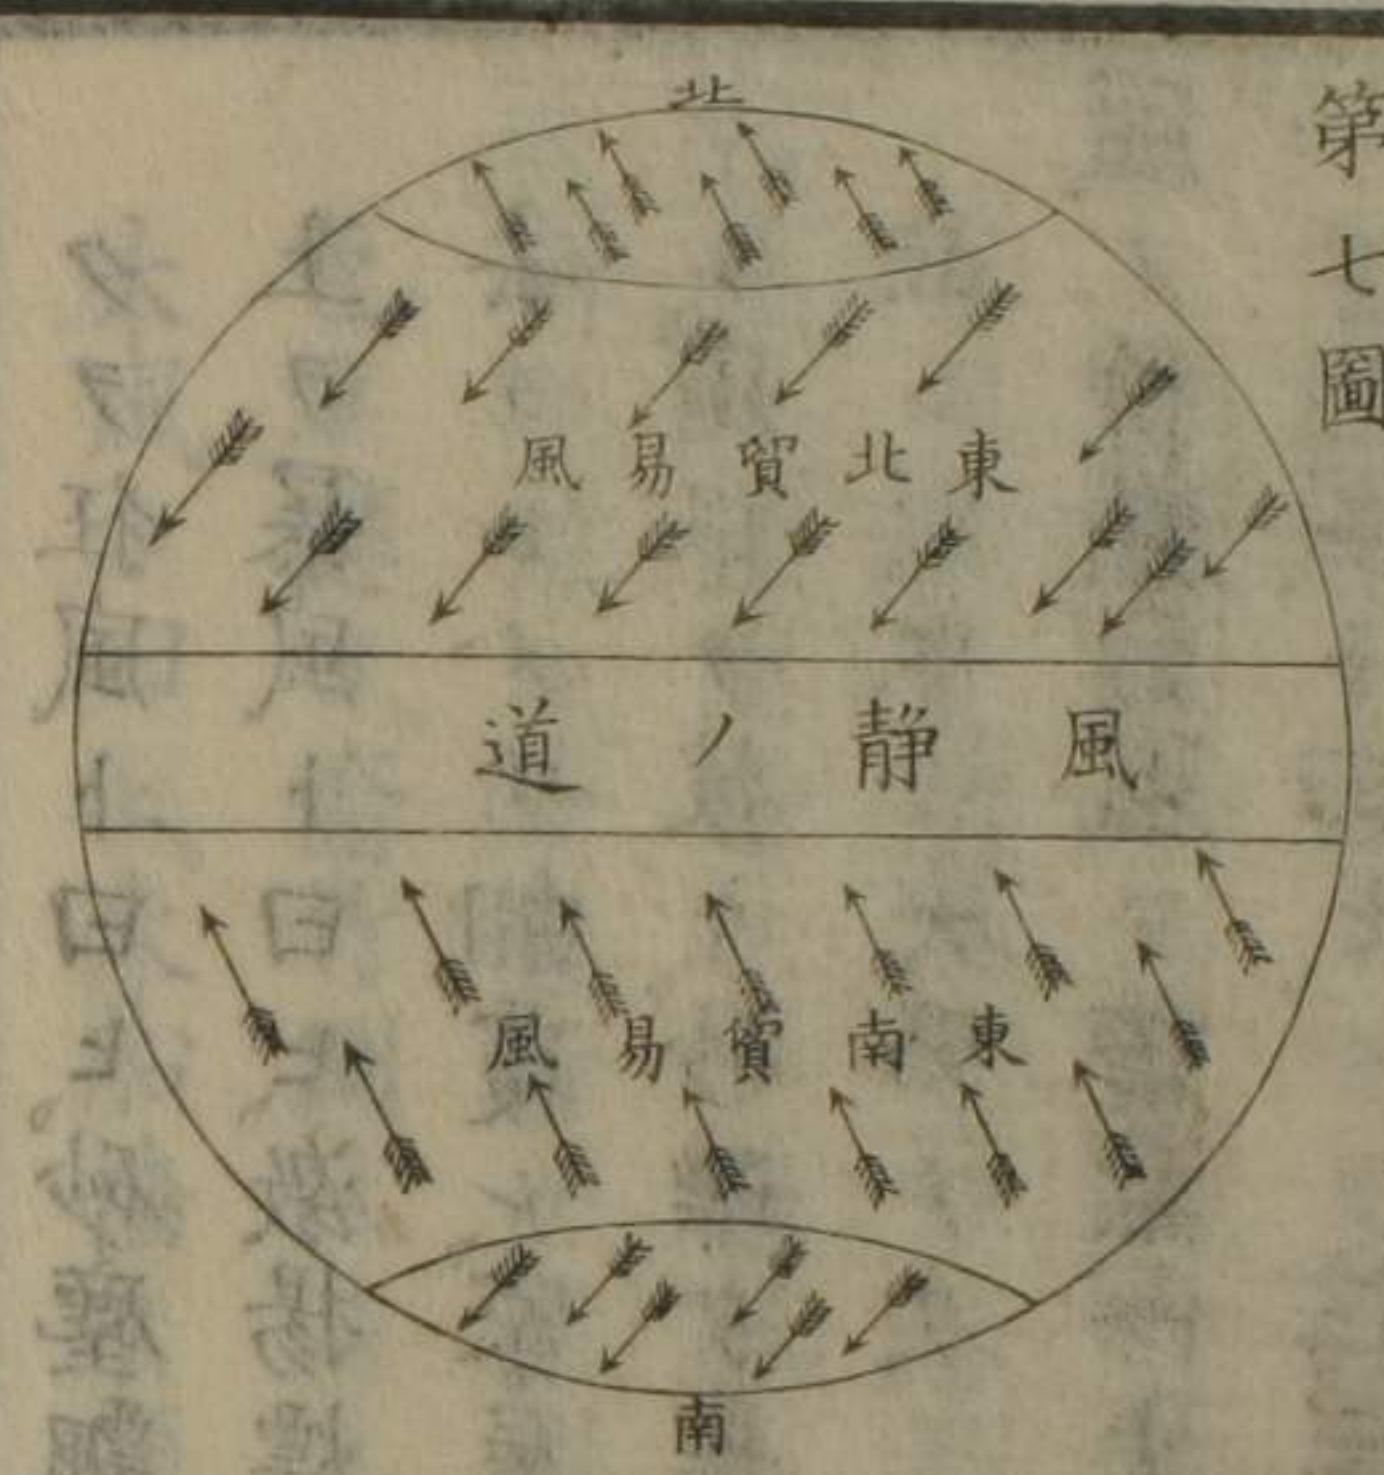 第七圖
北
東北貿易風
風靜ノ道
東南貿易風
南